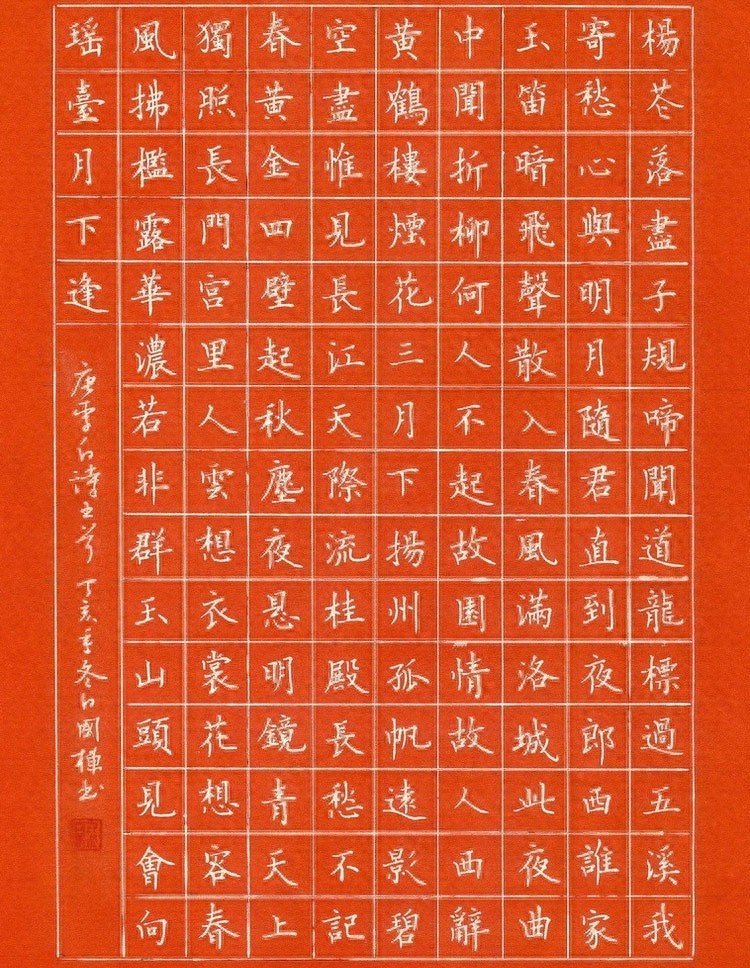 楊芲落盡子規啼聞道龍標過五溪我
寄愁心與明月隨君直到夜郎西誰家
玉笛暗飛聲散入春風滿洛城此夜曲
中聞折柳何人不起故園情故人西辭
黄鶴樓煙花三月下揚州孤帆遠影碧
空盡惟見長江天際流桂殿長愁不記
春黄金四壁起秋塵夜悬明鏡青天上
獨照長門宮里人雲想衣裳花想容春
風拂檻露華濃若非群玉山頭見會向
瑶臺月下逢
唐李白詩五首 丁亥年冬白國棟书